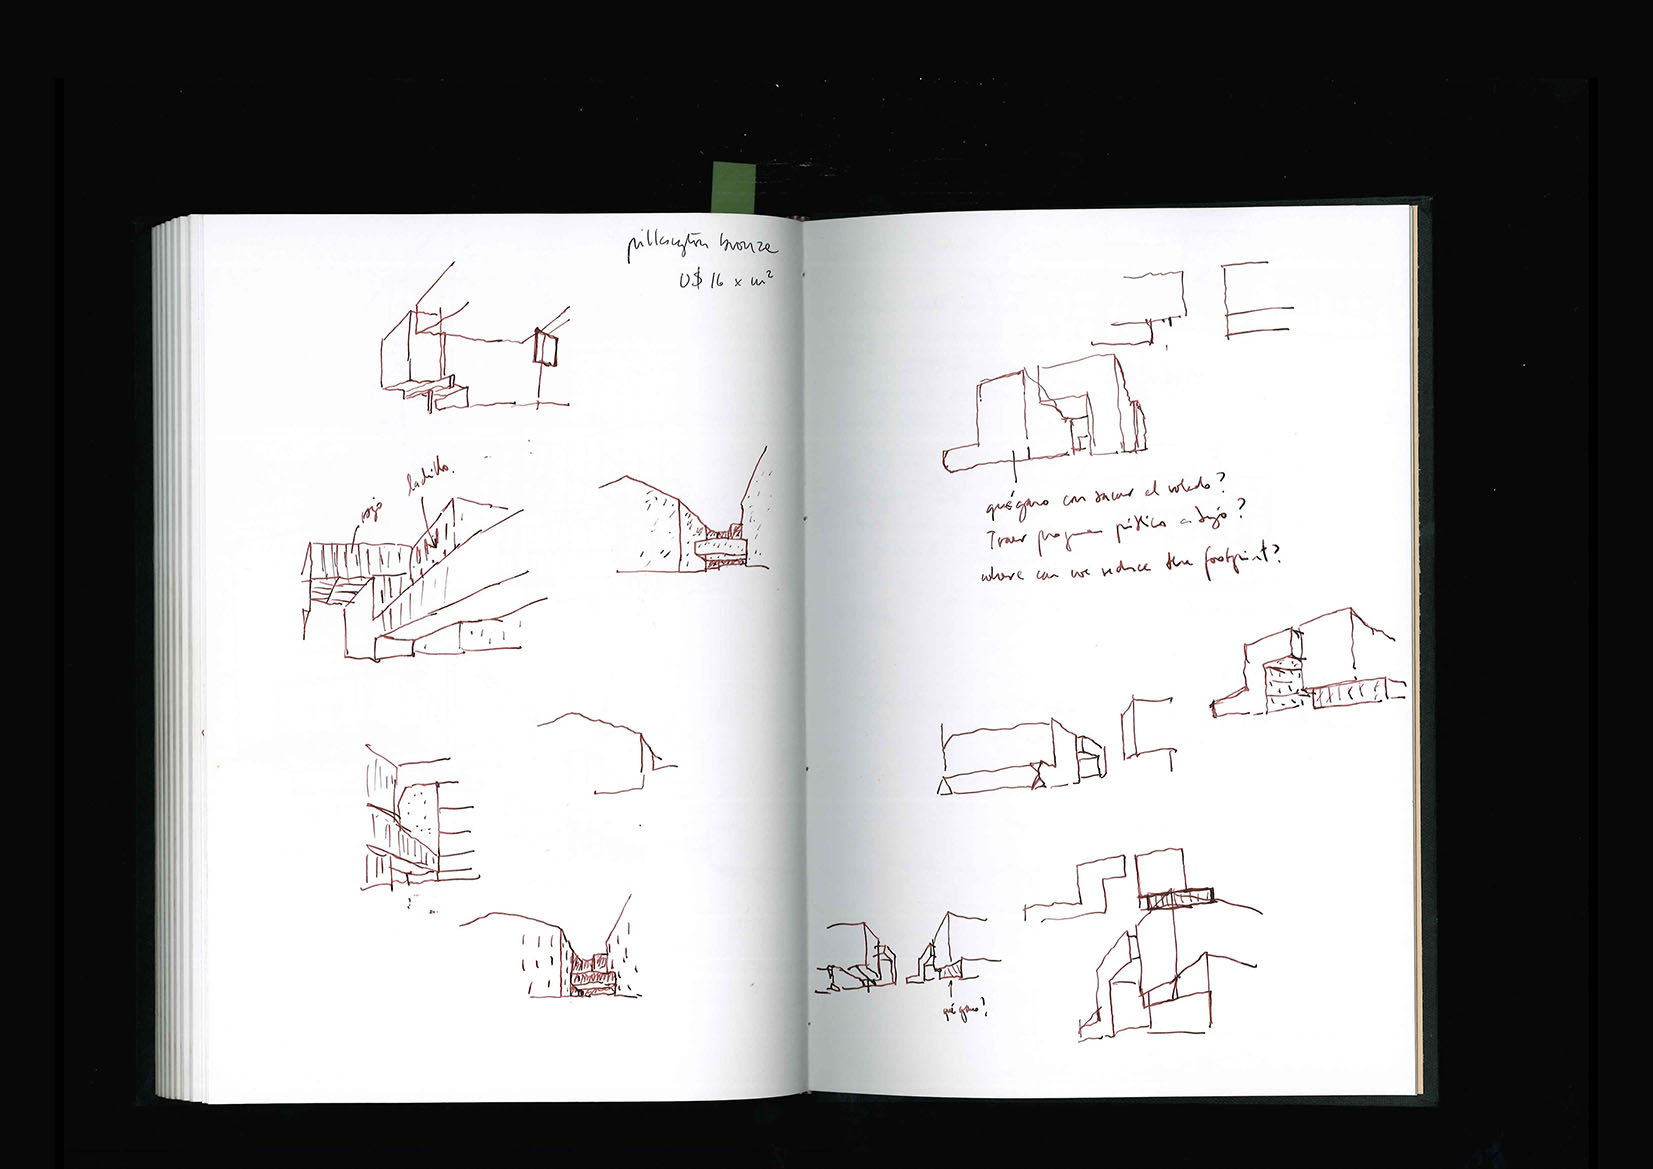 pilkington bronze
U$ 16 x m²
ladrillo.
rojo
qué gano con sacar el volado?
Traer programa público abajo?
where can we reduce the footprint?
qué gano?